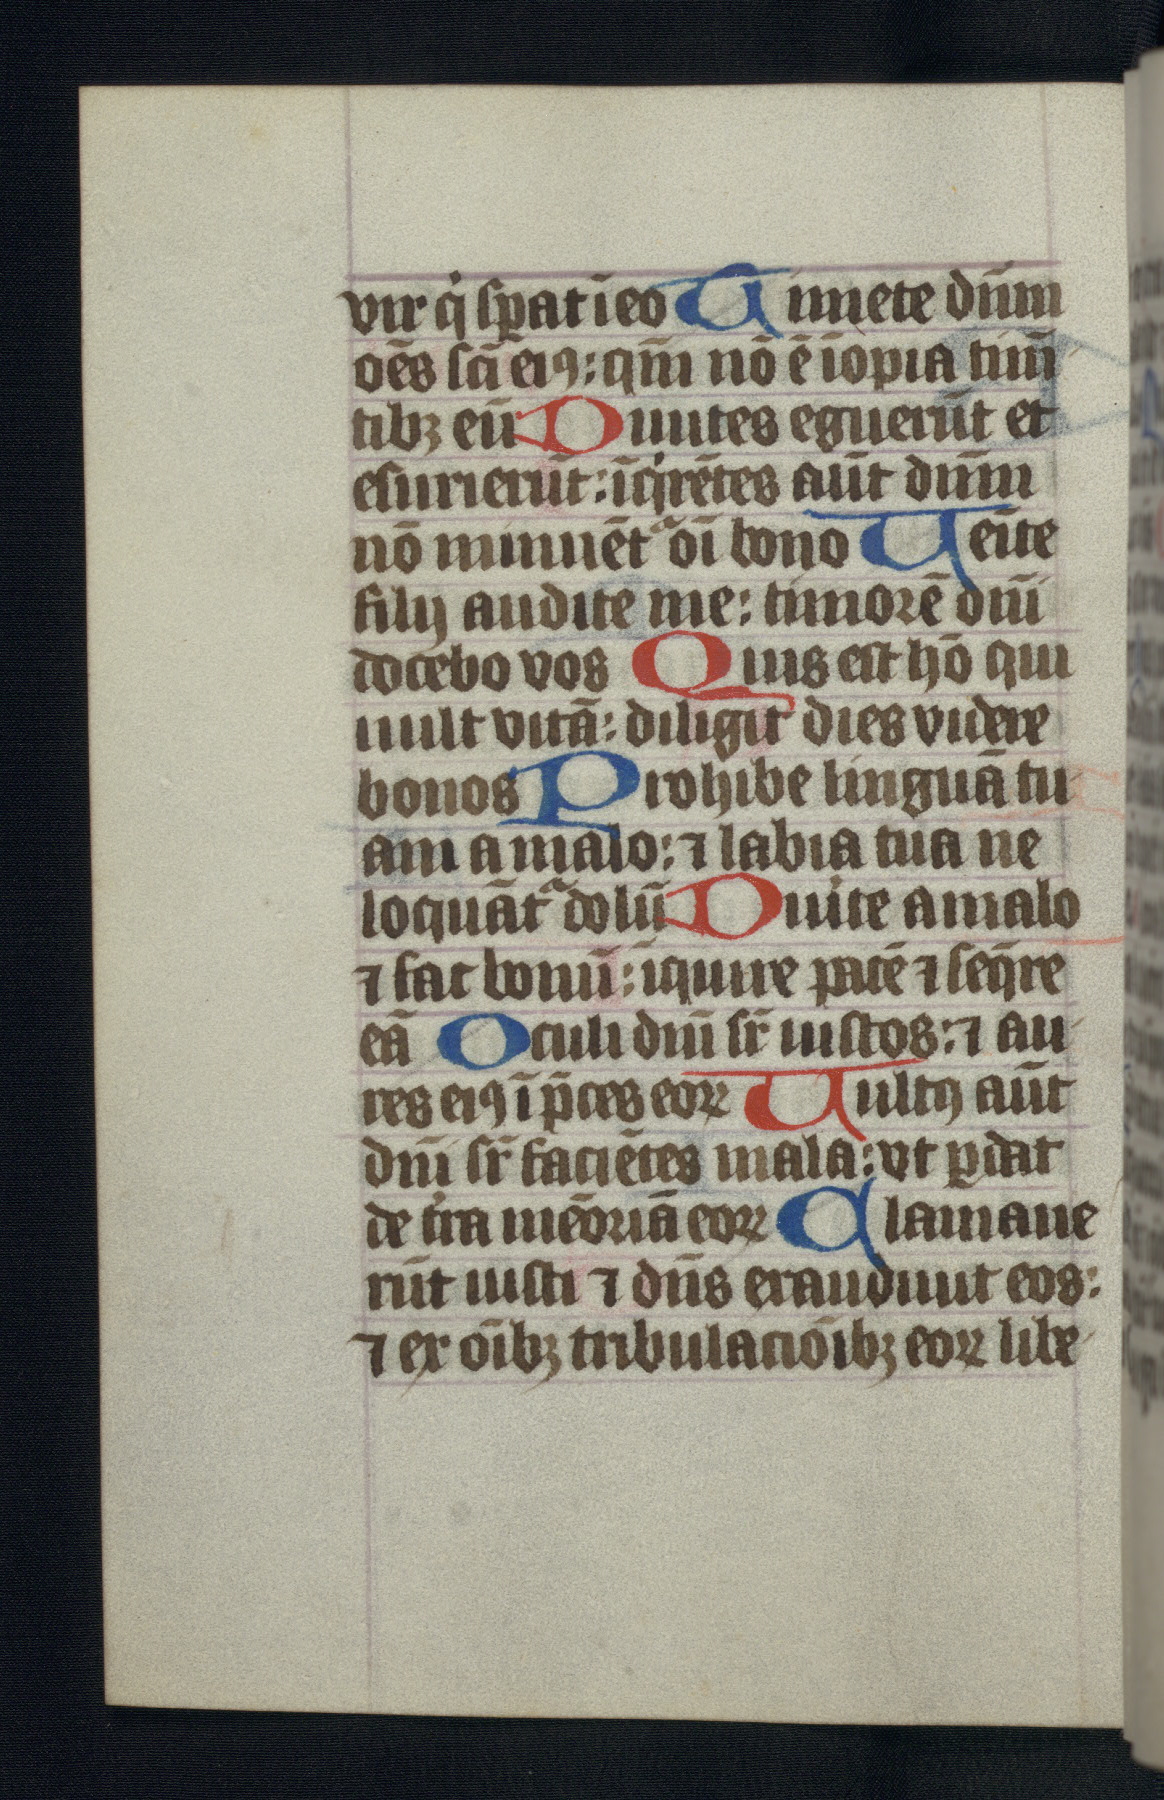 vir qͥ sꝑat ī eo Timete dn̄m
oēs scī eiꝰ: qm̄ nō ē īopia timē
tibꝫ eū Diuites eguerūt et
esurierūt: īqͥrētes aūt dn̄m
nō minuēt᷑ oī bono Ueīte
filij audite me: timorē dn̄i
docebo vos Quis est hō qui
uult vitā: diligit dies videre
bonos Prohibe linguā tu
am a malo: ⁊ labia tua ne
loquāt᷑ dolū Diuͥte a malo
⁊ fac bonū: īquire pacē ⁊ seq̄re
eā Oculi dn̄i sr̄ iustos: ⁊ au
res eiꝰ ī p̄ces eoꝝ Uultꝰ aūt
dn̄i sr̄ faciētes mala: vt ꝑdat
de t͛ra mēoriā eoꝝ Clamaue
rūt iusti ⁊ dn̄s exaudiuit eos:
⁊ ex oībꝫ tribulaciōibꝫ eoꝝ libe